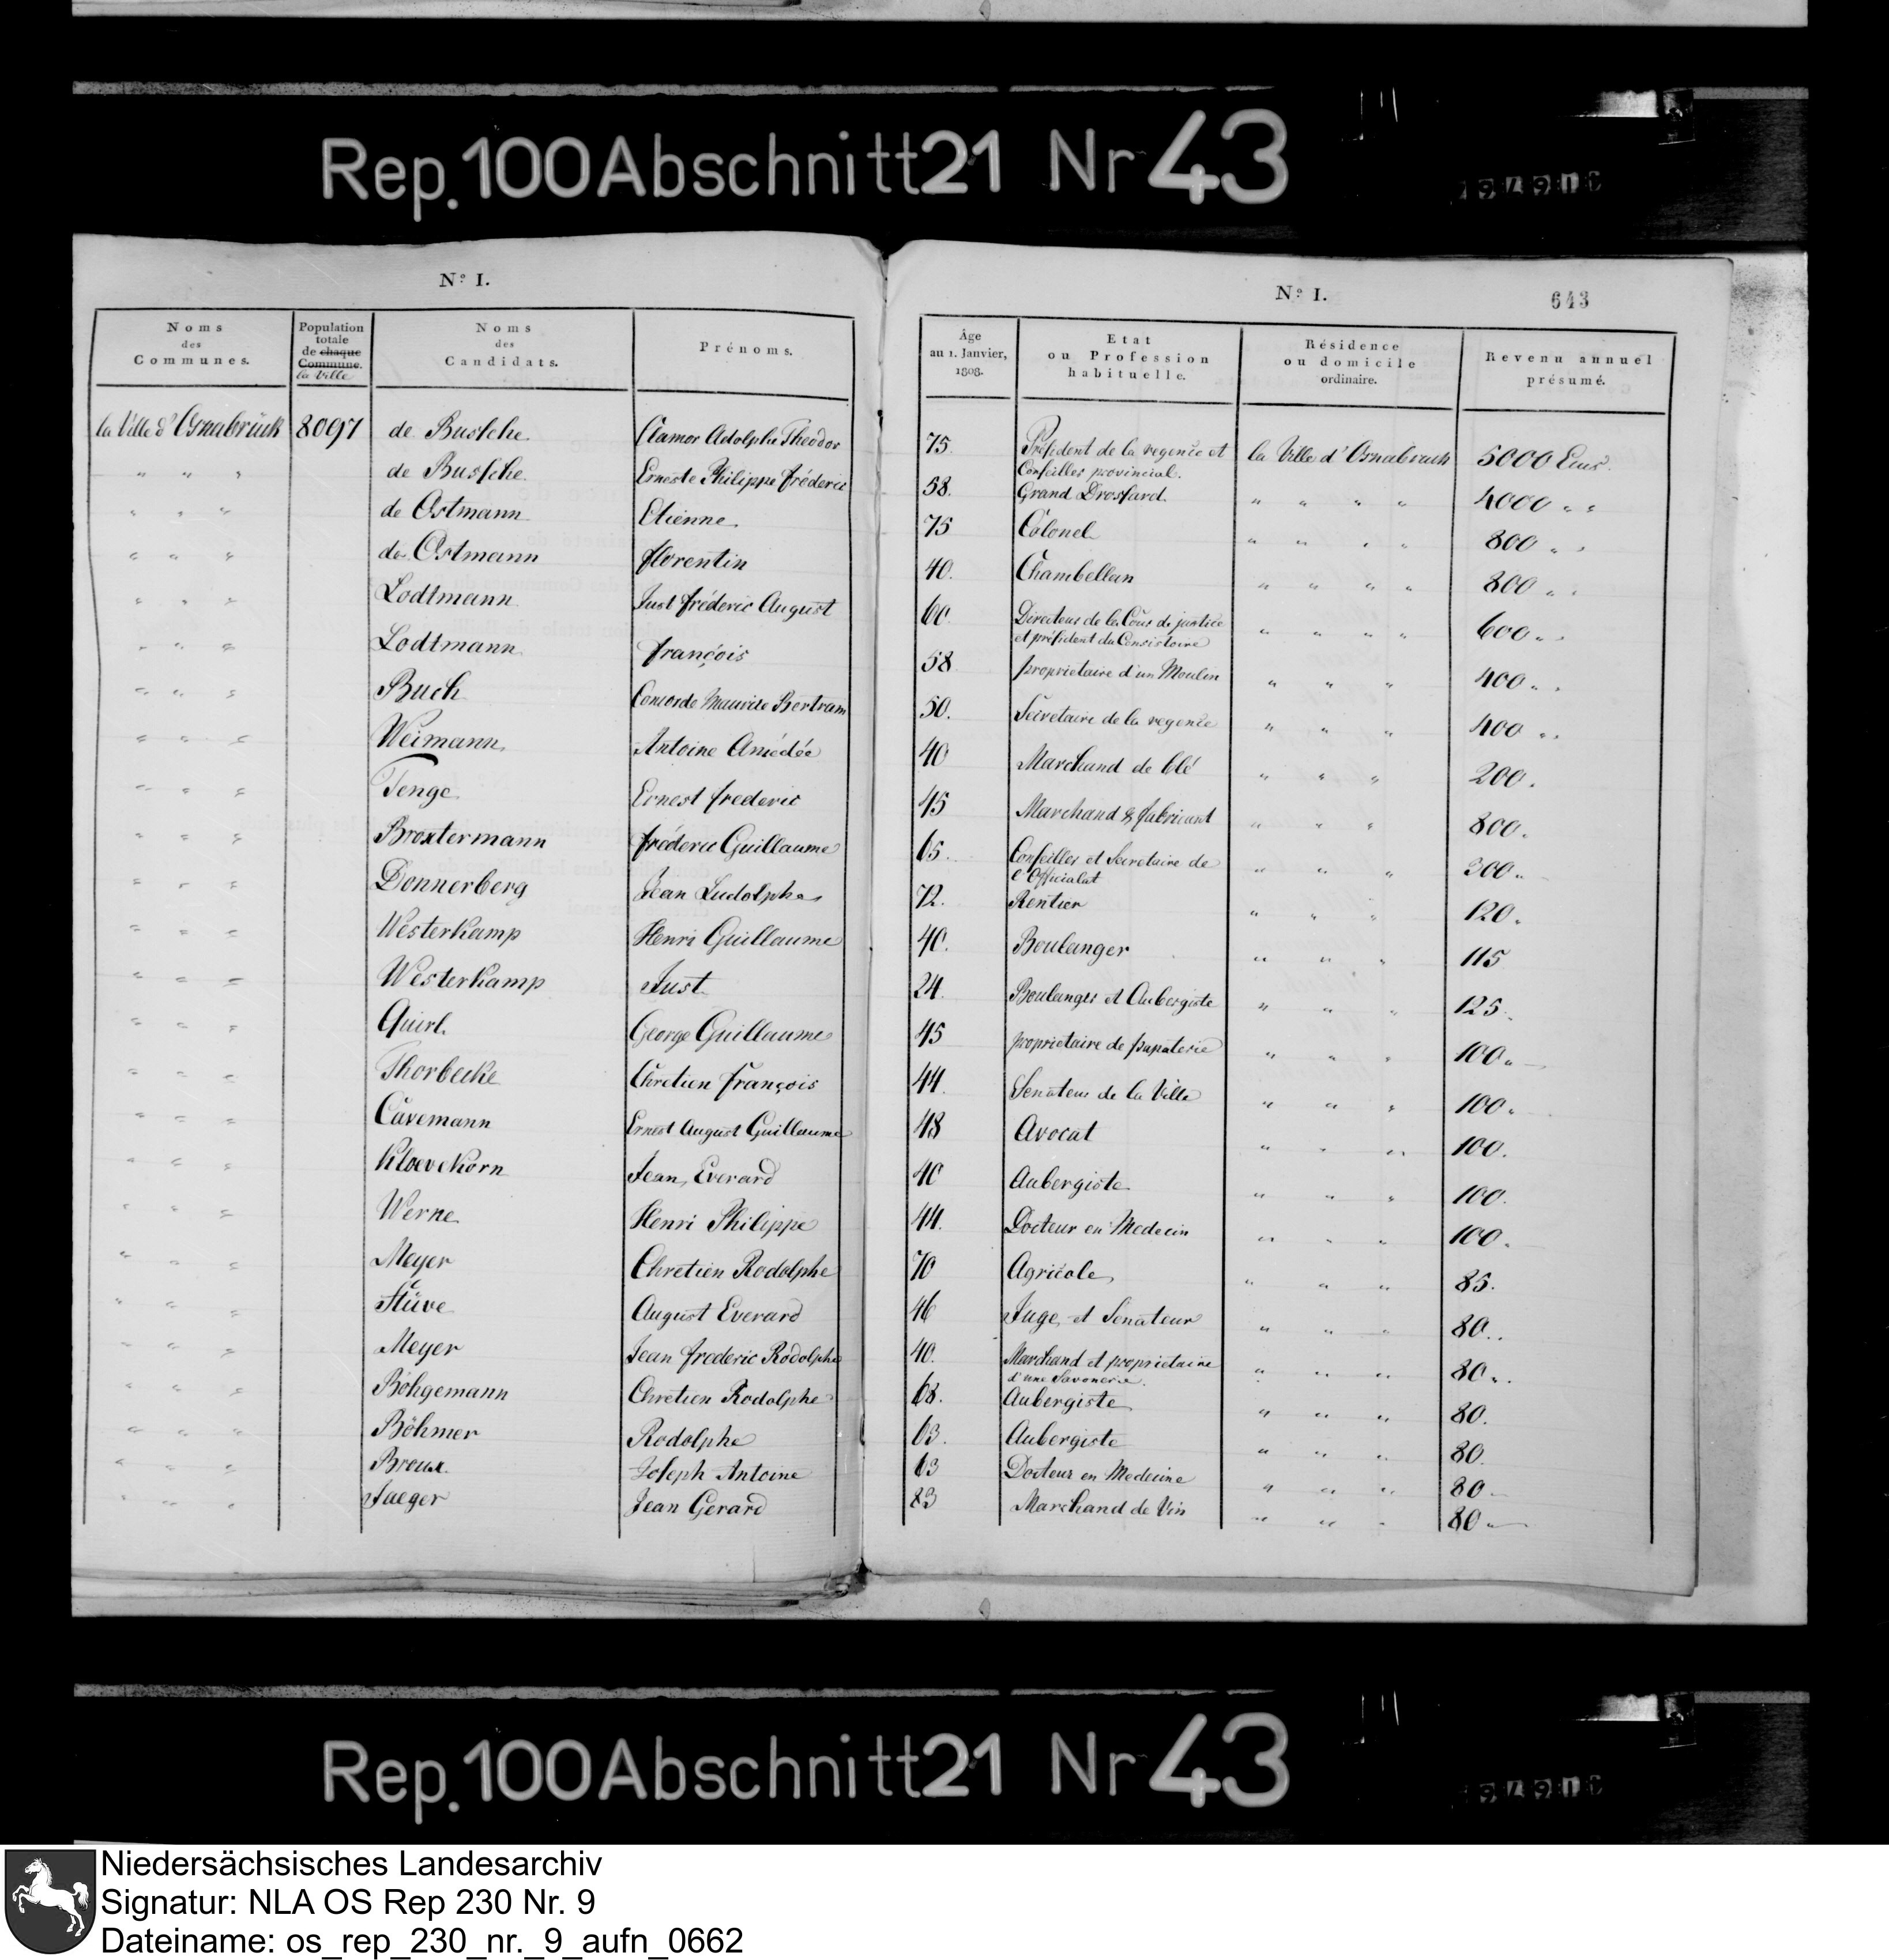 Rep. 100 Abschnitt 21 Nr 43
N.º I.
Noms des Communes.
Population totale de chaque Commune. la Ville
Noms des Candidats.
Prénoms.
la Ville d'Osnabrück 8097 de Bussche Clamor Adolphe Theodor
" " " de Bussche. Erneste Philippe fréderic
" " " de Ostmann Etienne.
" " " de Ostmann florentin
" " " Lodtmann Just fréderic August
" " " Lodtmann françois
" " " Buch Concorde Maurice Bertram
" " " Weimann, Antoine Amédée
" " " Tenge Ernest frederic
" " " Broxtermann fréderic Guillaume
" " " Donnerberg Jean Ludolphe
" " " Westerkamp Henri Guillaume
" " " Westerkamp Just
" " " Quirl. George Guillaume
" " " Thorbecke Chretien françois
" " " Cavemann Ernest August Guillaume
" " " Kloevekorn Jean Everard
" " " Werne Henri Philippe
" " " Meyer Chretien Rodolphe
" " " Stüve August Everard
" " " Meyer Jean frederic Rodolphe
" " " Böhgemann Chretien Rodolphe
" " " Böhmer Rodolphe
" " " Breux Joseph Antoine
" " " Jaeger Jean Gerard
N.º I.
643
Âge au 1. Janvier, 1808.
Etat ou Profession habituelle.
Résidence ou domicile ordinaire.
Revenu annuel présumé.
75. Président de la regence et la Ville d'Osnabruck 5000 Ecus.
Conseilles provincial.
58. Grand Drossard " " " " 4000 " "
75 Colonel " " " " 800 " "
40. Chambellan " " " " 800 " "
60. Directeur de la Cour de justice " " " " 600 " "
et président du Consistoire
58 propriètaire d'un Moulin " " " 400 " "
50. Secretaire de la regence " " " 400 " "
40 Marchand de blé " " " 200.
45 Marchand & fabricant " " " 800.
65. Conseilles et Secretaire de " " " 300 "
l'Officialat
72. Rentier " " " 120.
40. Boulanger " " " 115
24. Boulanger et Aubergiste " " " 125.
45 propriètaire de papaterie " " " 100 "
44. Senateur de la Ville " " " 100.
48 Avocat " " " 100.
40 Aubergiste " " " 100.
44. Docteur en Medecin " " " 100.
70 Agricole " " " 85.
46 Juge, et Senateur " " " 80..
40. Marchand et propriètaire " " " 80 "
d'une Savonerie.
68. Aubergiste " " " 80.
63. Aubergiste " " " 80.
63 Docteur en Medecine " " " 80
83 Marchand de Vin " " " 80 "
Rep. 100 Abschnitt 21 Nr 43
Niedersächsisches Landesarchiv
Signatur: NLA OS Rep 230 Nr. 9
Dateiname: os_rep_230_nr._9_aufn_0662